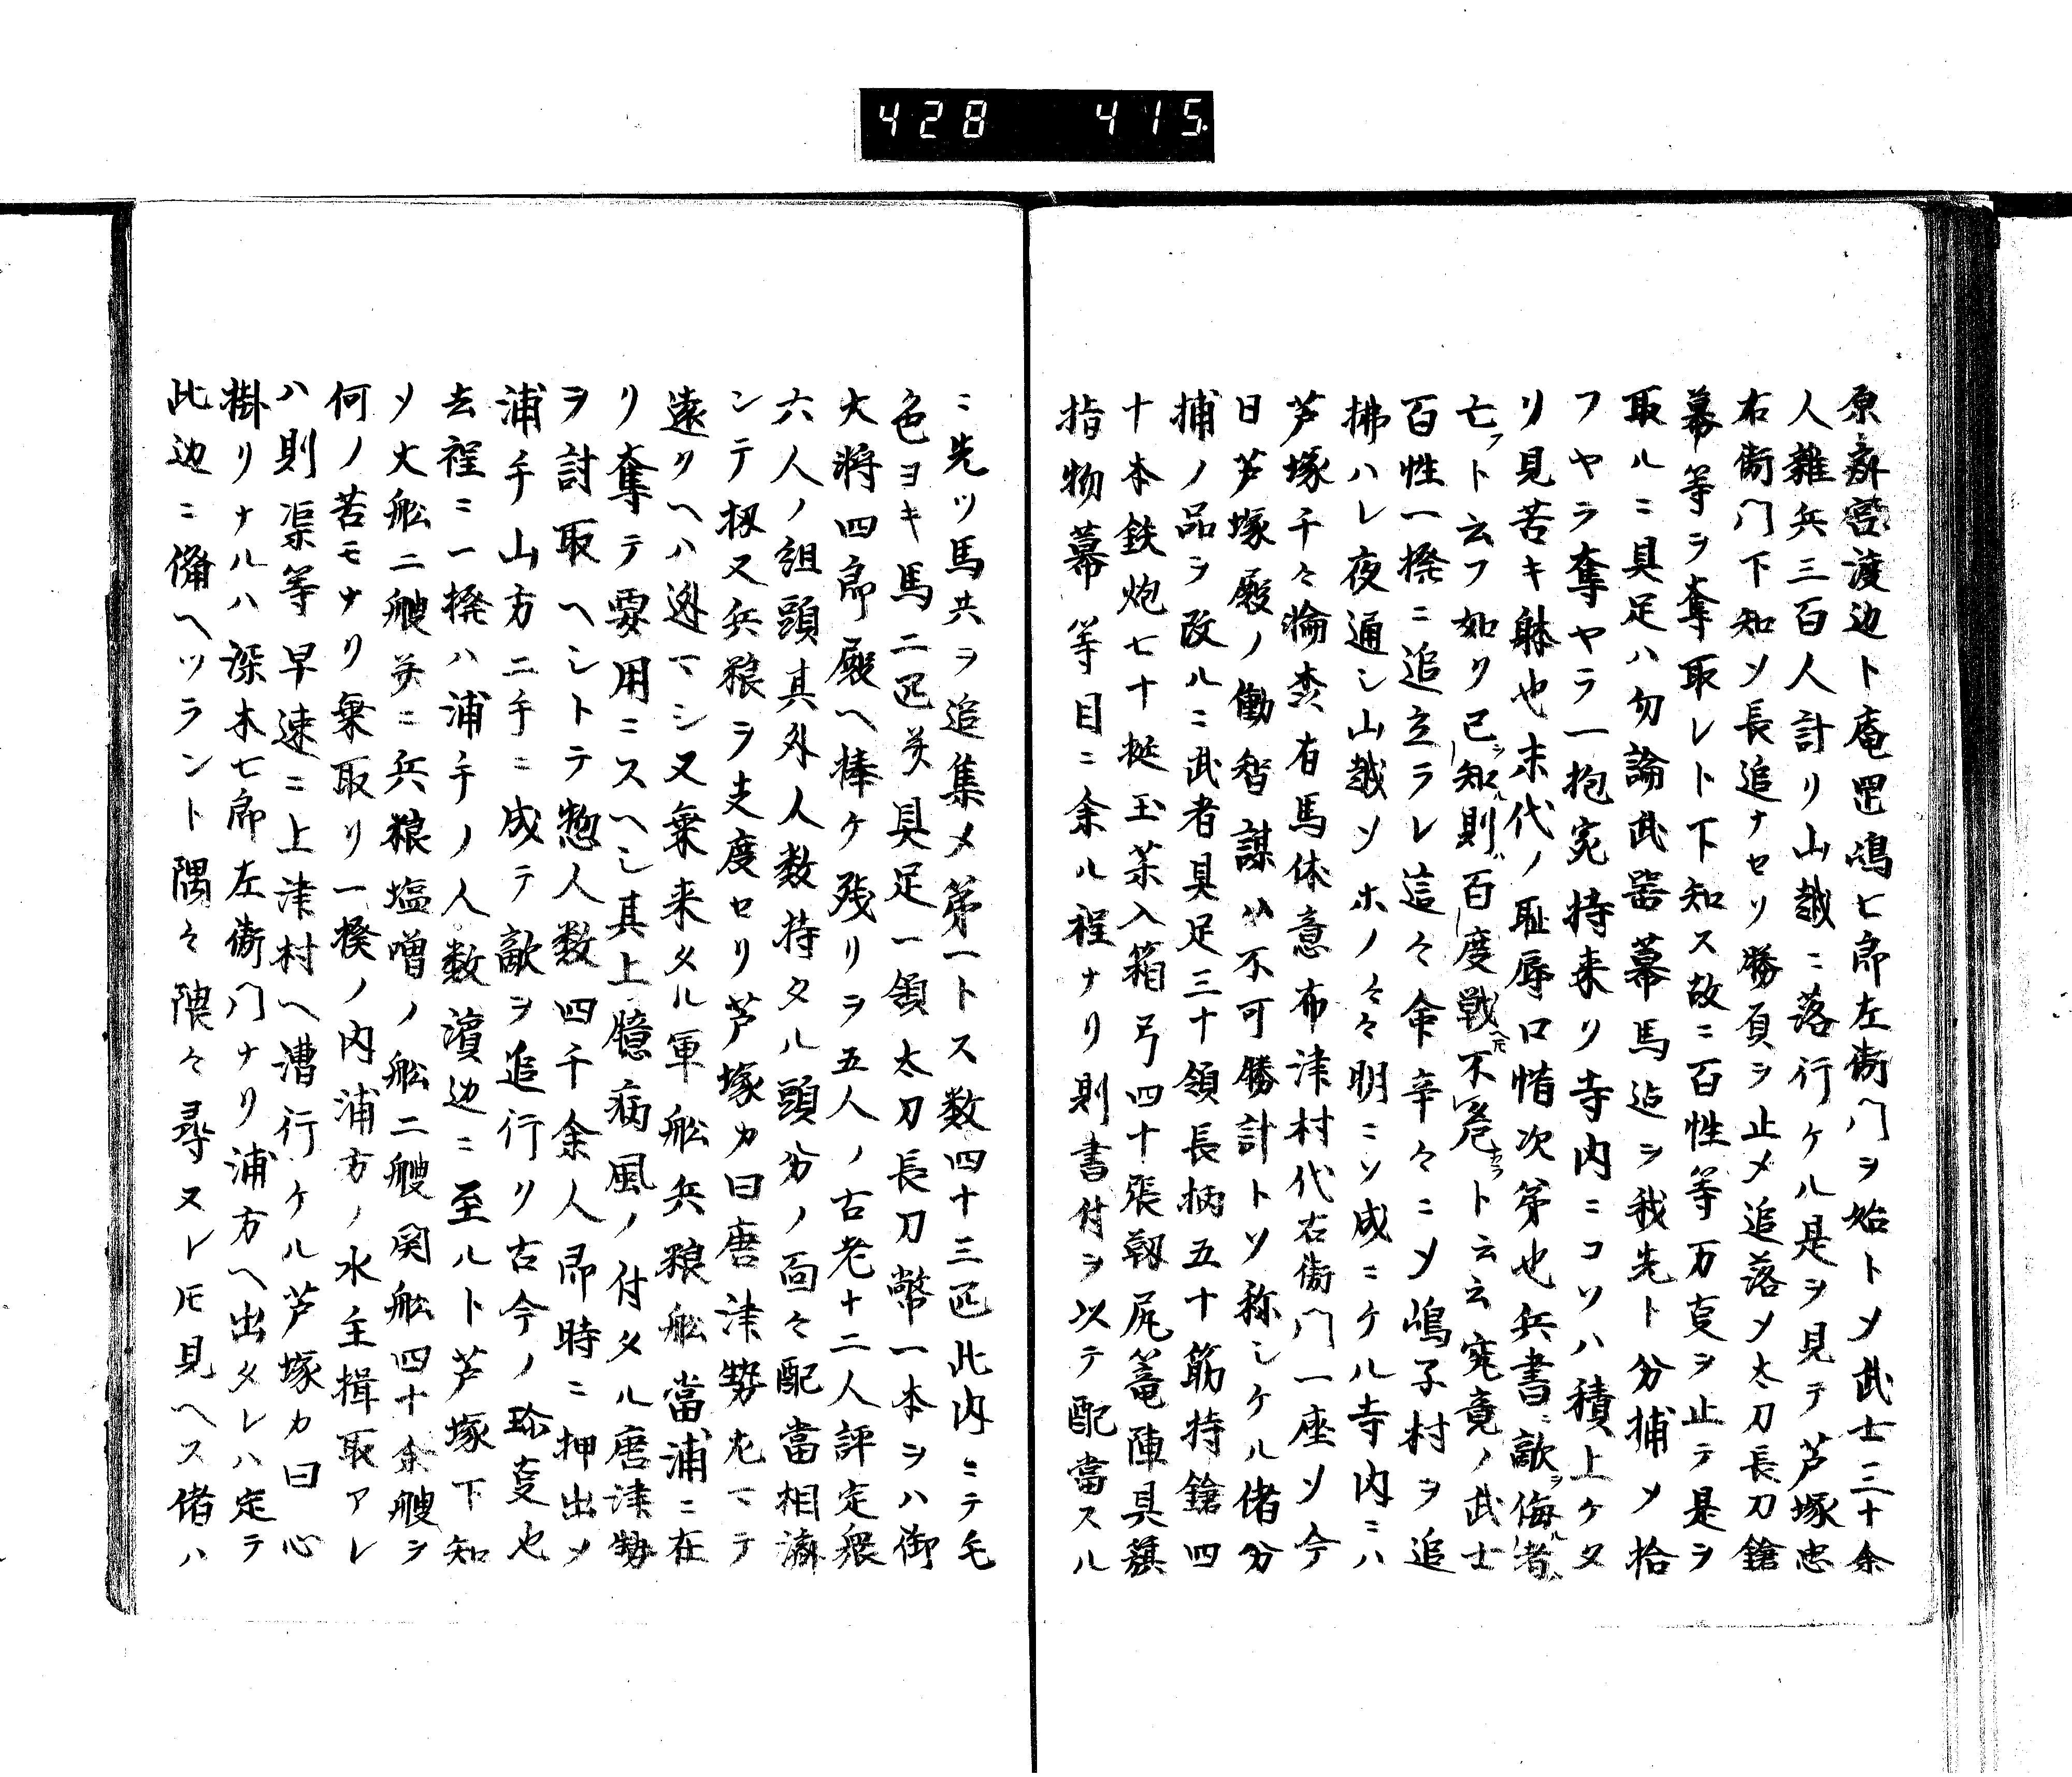 428 415
原新宮渡辺ト庵罡嶋七郎左衛門ヲ始トメ武士三十余
人雑兵三百人計リ山越ニ落行ケル是ヲ見テ芦塚忠
右衛門下知ソ長追ナセリ勝負ヲ止メ追落メ太刀長刀鎗
幕等ヲ奪取レト下知ス故ニ百性等万亥ヲ止テ是ヲ
取ルニ具足ハ勿論武器幕馬迠ヲ我先ト分捕メ拾
フヤラ奪ヤラ一抱宛持来リ寺内ニコソハ積上ケタ
リ見苦キ躰也末代ノ耻辱口惜次第也兵書ニ敵ヲ侮ル者ハ
亡フト云フ如リ已ヲ知ル則ハ百度戦テ不危カラト云云寃竟ノ武士
百性一揆ニ追立ラレ這々命辛々ニメ嶋子村ヲ追
拂ハレ夜通シ山越ソホノ々々明ニソ成ニケル寺内ニハ
芦塚千々輪大有馬休意布津村代右衛門一座ソ今
日芦塚殿ノ働智謀ハ不可勝計トソ称シケル偖分
捕ノ品ヲ改ルニ武者具足三十領長柄五十筋持鎗四
十本鉄炮七十挺玉茶入箱弓四十張靭尻篭陣具簱
指物幕等目ニ余ル程ナリ則書付ヲ以テ配當スル
ニ先ツ馬共ヲ追集メ第一トス数四十三匹此内ニテ毛
色ヨキ馬二匹并具足一領太刀長刀幣一本ヲハ御
大将四郎殿ヘ捧ケ残リヲ五人ノ古老十二人評定衆
六人ノ組頭其外人数持タル頭分ノ面々配當相濟
ンテ扨又兵粮ヲ支度セリ芦塚カ曰唐津勢尤マテ
遠リヘハ迯マシ又乗来タル軍舩兵粮舩當浦ニ在
リ奪テ要用ニスヘシ其上臆病風ノ付タル唐津勢
ヲ討取ヘシトテ惣人数四千余人即時ニ押出メ
浦手山方二手ニ成テ敵ヲ追行リ古今ノ珎亥也
去程ニ一揆ハ浦手ノ人数濵辺ニ至ルト芦塚下知
ソ大舩二艘并ニ兵粮塩噌ノ舩二艘関舩四十余艘ヲ
何ノ苦モナリ乗取リ一揆ノ内浦方ノ水主揖取アレ
ハ則渠等早速ニ上津村ヘ漕行ケル芦塚カ曰心
掛リナルハ深木七郎左衛門ナリ浦方ヘ出タレハ定テ
此辺ニ備ヘツラント隅々隈々尋ヌレ𪜈見ヘス偖ハ